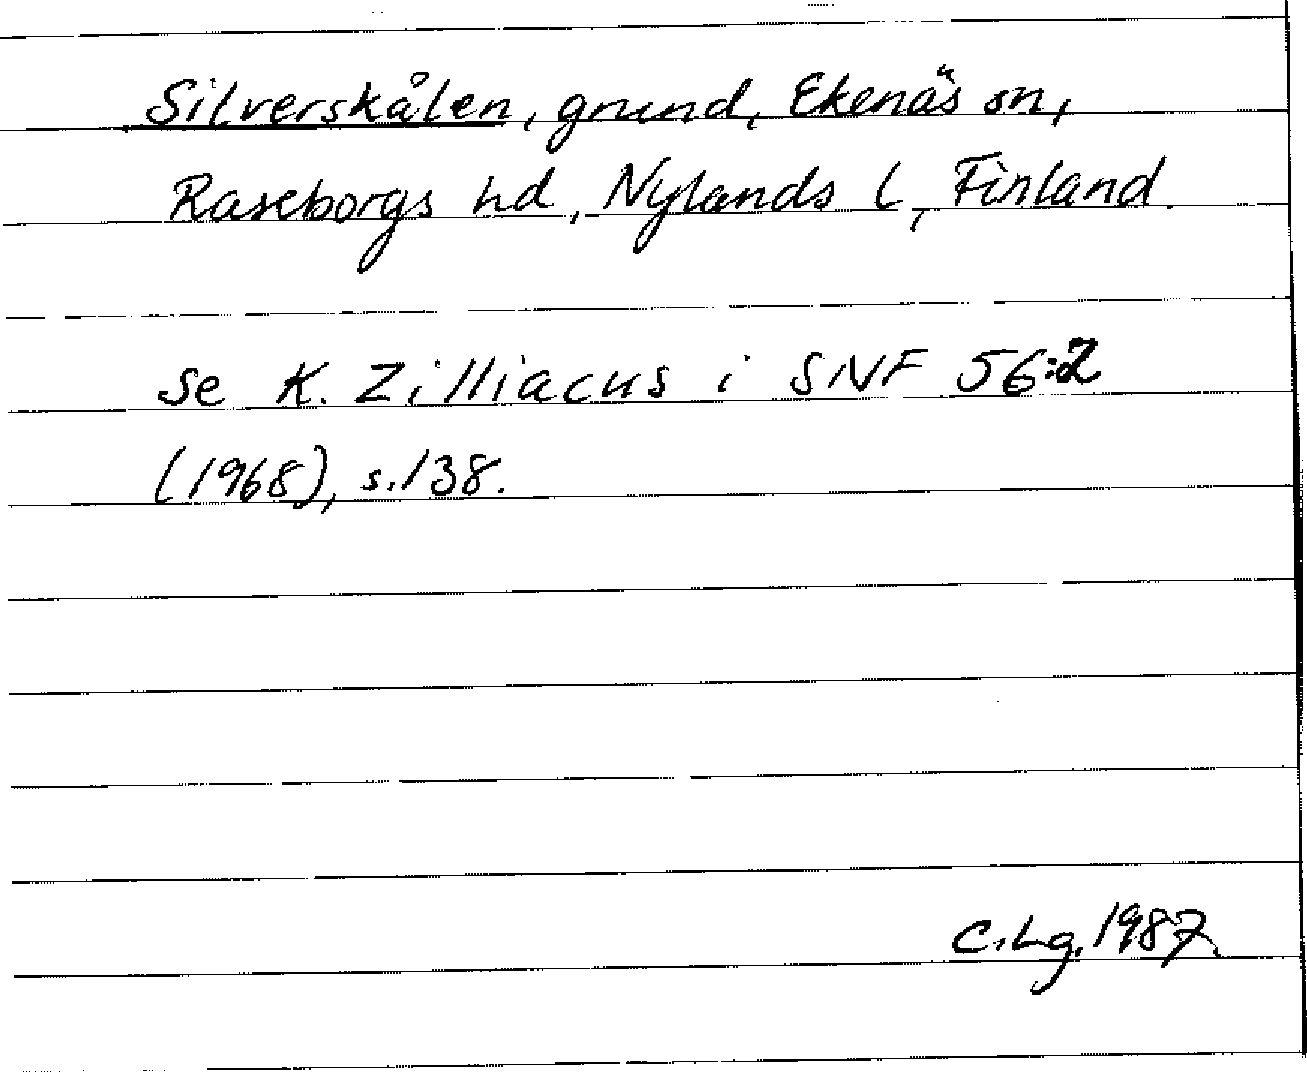 Silverskålen, grund, Ekenäs sn,
Raseborgs hd, Nylands l, Finland.
Se K. Zilliacus i SNF 56:2
(1968), s. 138.
C.Lg. 1987